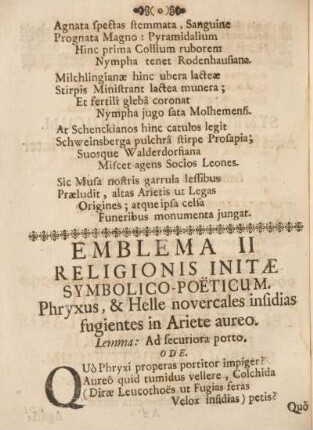 Agnata spectas stemmata, Sanguine
Prognata Magno: Pyramidalium
Hinc prima Collium ruborem
Nympha tenet Rodenhausiana.
Milchlingianæ hinc ubera lacteæ
Stirpis Ministrant lactea munera;
Et fertili glebâ coronat
Nympha jugo sata Molhemensi.
At Schenckianos hinc catulos legit
Schweinsberga pulchrâ stirpe Prosapia;
Suosque Walderdorfiana
Miscet agens Socios Leones.
Sic Musa nostris garrula lessibus
Præludit, altas Arietis ut Legas
Origines; atque ipsa celsa
Funeribus monumenta jungat.
EMBLEMA II
RELIGIONIS INITÆ
SYMBOLICO-POËTICUM.
Phryxus, & Helle novercales insidias
fugientes in Ariete aureo.
Lemma: Ad securiora porto.
ODE.
QUò Phryxi properas portitor impiger?
Aureô quid tumidus vellere, Colchida
(Diræ Leucothoës ut Fugias feras
Velox insidias) petis?
Quò